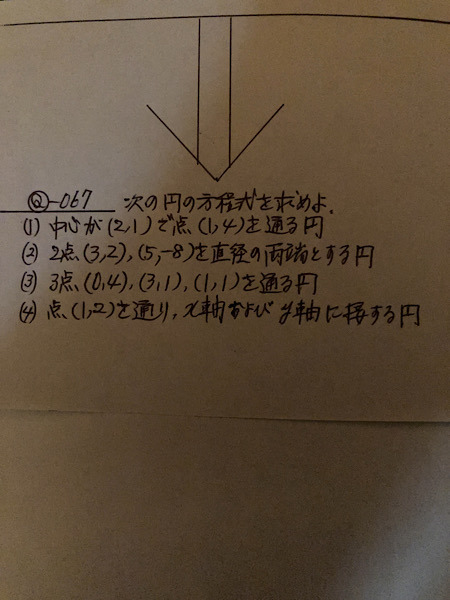 Ⓠ-067 次の円の方程式を求めよ.
(1) 中心が(2,1)で点(1,4)を通る円
(2) 2点(3,2),(5,-8)を直径の両端とする円
(3) 3点(0,4),(3,1),(1,1)を通る円
(4) 点(1,2)を通り,x軸およびy軸に接する円